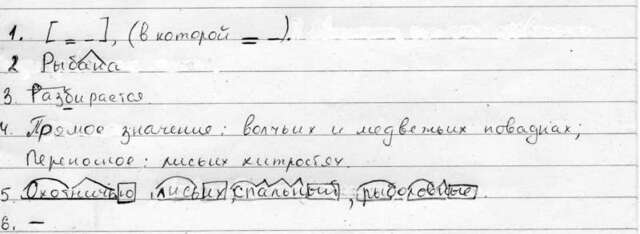 1. [ = - ], (в которой = - ).
2 Рыбака
3. Разбирается.
4. Прямое значение: волчьих и медвежьих повадках;
Переносное: лисьих хитростях.
5. Охотничью, лисьих, спальный, рыболовные.
6. -